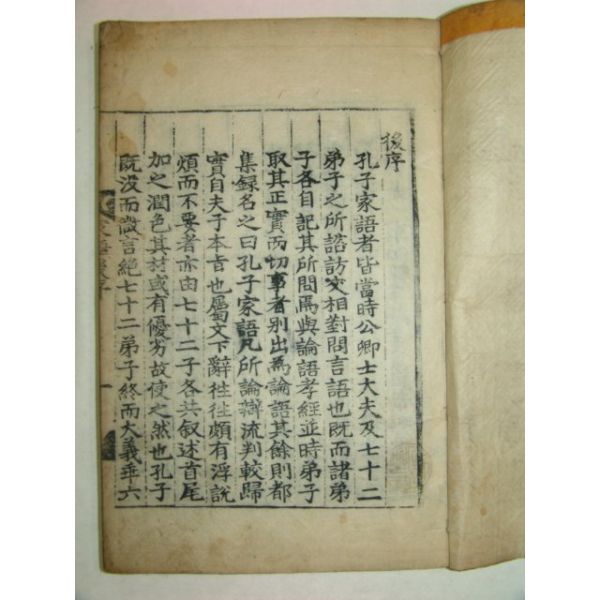 後序
孔子家語者皆當時公卿士大夫及七十二
弟子之所諮訪交相對問言語也既而諸弟
子各自記其所問焉與論語孝經並時弟子
取其正實而切事者別出為論語其餘則都
集録名之曰孔子家語凡所論辯流判較歸
實自夫子本旨也屬文下辭徃徃頗有浮說
煩而不要者亦由七十二子各共叙述首尾
加之潤色其材或有優劣故使之然也孔子
既没而微言絶七十二弟子終而大義乖六